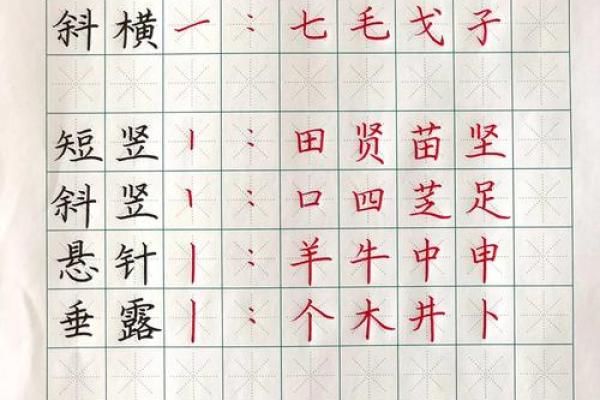 斜横一：七毛戈子
短竖丨：田贤苗坚
斜竖丨：口四芝足
悬针丨：羊牛中申
垂露丨：个木井卜